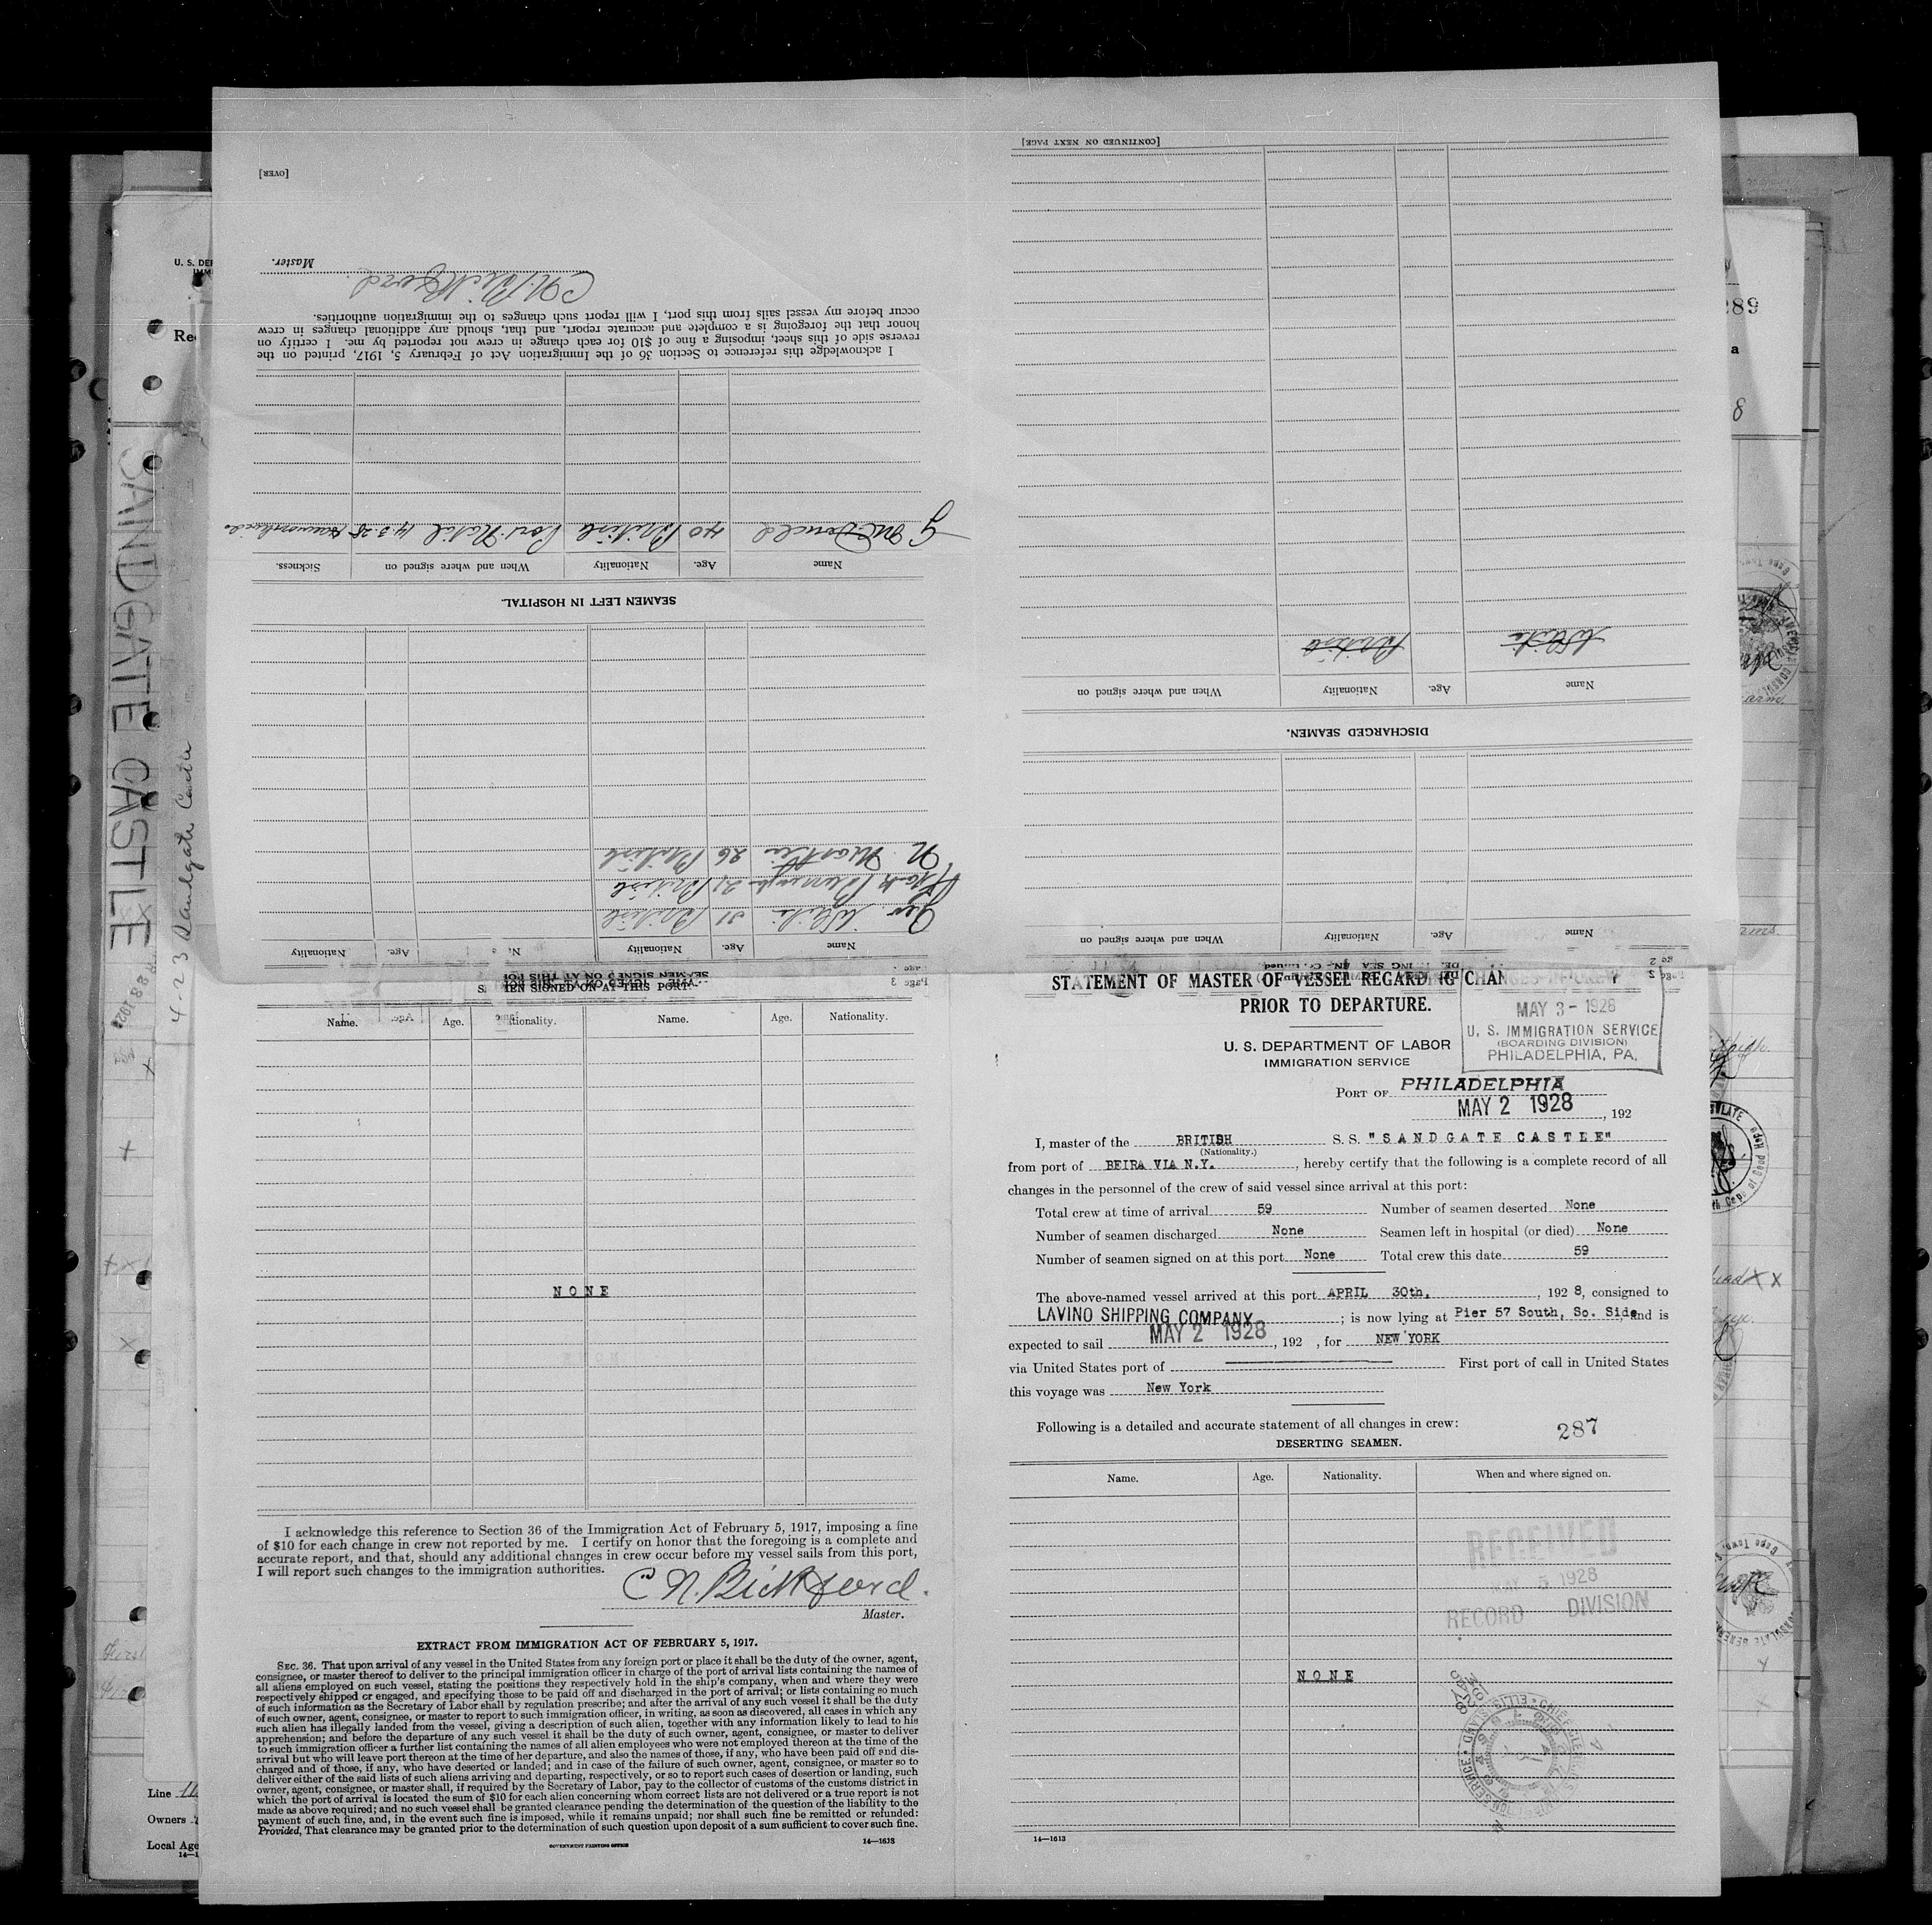 [OVER]
Master.
C. N. Bickford
I acknowledge this reference to Section 36 of the Immigration Act of February 5, 1917, printed on the
reverse side of this sheet, imposing a fine of $10 for each change in crew not reported by me. I certify on
honor that the foregoing is a complete and accurate report, and that, should any additional changes in crew
occur before my vessel sails from this port, I will report such changes to the immigration authorities.
SEAMEN LEFT IN HOSPITAL.
Name Age. Nationality When and where signed on Sickness.
G McDonald 40 British Port Natal 14.3.28
Page 3
SEAMEN SIGNED ON AT THIS PORT
Name Age. Nationality Age. Nationality
Geo. White 31 British
Frank 21 British
N. Martin 26 British
[CONTINUED ON NEXT PAGE]
DISCHARGED SEAMEN.
Name Age. Nationality When and where signed on
White British
Page 2
Name Age. Nationality When and where signed on
SANDGATE CASTLE
4-23 Sandgate Castle
U. S. DE
Re
289
a
8
SEAMEN SIGNED ON AT THIS PORT.
Name. Age. Nationality. Name. Age. Nationality.
NONE
I acknowledge this reference to Section 36 of the Immigration Act of February 5, 1917, imposing a fine
of $10 for each change in crew not reported by me. I certify on honor that the foregoing is a complete and
accurate report, and that, should any additional changes in crew occur before my vessel sails from this port,
I will report such changes to the immigration authorities.
C. N. Bickford.
Master.
EXTRACT FROM IMMIGRATION ACT OF FEBRUARY 5, 1917.
SEC. 36. That upon arrival of any vessel in the United States from any foreign port or place it shall be the duty of the owner, agent,
consignee, or master thereof to deliver to the principal immigration officer in charge of the port of arrival lists containing the names of
all aliens employed on such vessel, stating the positions they respectively hold in the ship's company, when and where they were
respectively shipped or engaged, and specifying those to be paid off and discharged in the port of arrival; or lists containing so much
of such information as the Secretary of Labor shall by regulation prescribe; and after the arrival of any such vessel it shall be the duty
of such owner, agent, consignee, or master to report to such immigration officer, in writing, as soon as discovered, all cases in which any
such alien has illegally landed from the vessel, giving a description of such alien, together with any information likely to lead to his
apprehension; and before the departure of any such vessel it shall be the duty of such owner, agent, consignee, or master to deliver
to such immigration officer a further list containing the names of all alien employees who were not employed thereon at the time of the
arrival but who will leave port thereon at the time of her departure, and also the names of those, if any, who have been paid off and dis-
charged and of those, if any, who have deserted or landed; and in case of the failure of such owner, agent, consignee, or master so to
deliver either of the said lists of such aliens arriving and departing, respectively, or so to report such cases of desertion or landing, such
owner, agent, consignee, or master shall, if required by the Secretary of Labor, pay to the collector of customs of the customs district in
which the port of arrival is located the sum of $10 for each alien concerning whom correct lists are not delivered or a true report is not
made as above required; and no such vessel shall be granted clearance pending the determination of the question of the liability to the
payment of such fine, and, in the event such fine is imposed, while it remains unpaid; nor shall such fine be remitted or refunded:
Provided, That clearance may be granted prior to the determination of such question upon deposit of a sum sufficient to cover such fine.
GOVERNMENT PRINTING OFFICE
14—1613
Line
Owners
Local Age
STATEMENT OF MASTER OF VESSEL REGARDING CHANGES IN CREW
PRIOR TO DEPARTURE.
MAY 3 - 1928
U. S. IMMIGRATION SERVICE
(BOARDING DIVISION)
PHILADELPHIA, PA.
U. S. DEPARTMENT OF LABOR
IMMIGRATION SERVICE
PORT OF PHILADELPHIA
MAY 2 1928, 192
I, master of the BRITISH S. S. "SANDGATE CASTLE"
(Nationality.)
from port of BEIRA VIA N.Y., hereby certify that the following is a complete record of all
changes in the personnel of the crew of said vessel since arrival at this port:
Total crew at time of arrival 59 Number of seamen deserted None
Number of seamen discharged None Seamen left in hospital (or died) None
Number of seamen signed on at this port None Total crew this date 59
The above-named vessel arrived at this port APRIL 30th, 1928, consigned to
LAVINO SHIPPING COMPANY; is now lying at Pier 57 South, So. Side, and is
expected to sail MAY 2 1928, 192 , for NEW YORK
via United States port of First port of call in United States
this voyage was New York
Following is a detailed and accurate statement of all changes in crew:
287
DESERTING SEAMEN.
Name. Age. Nationality. When and where signed on.
RECEIVED
MAY 5 1928
RECORD DIVISION
NONE
14—1613